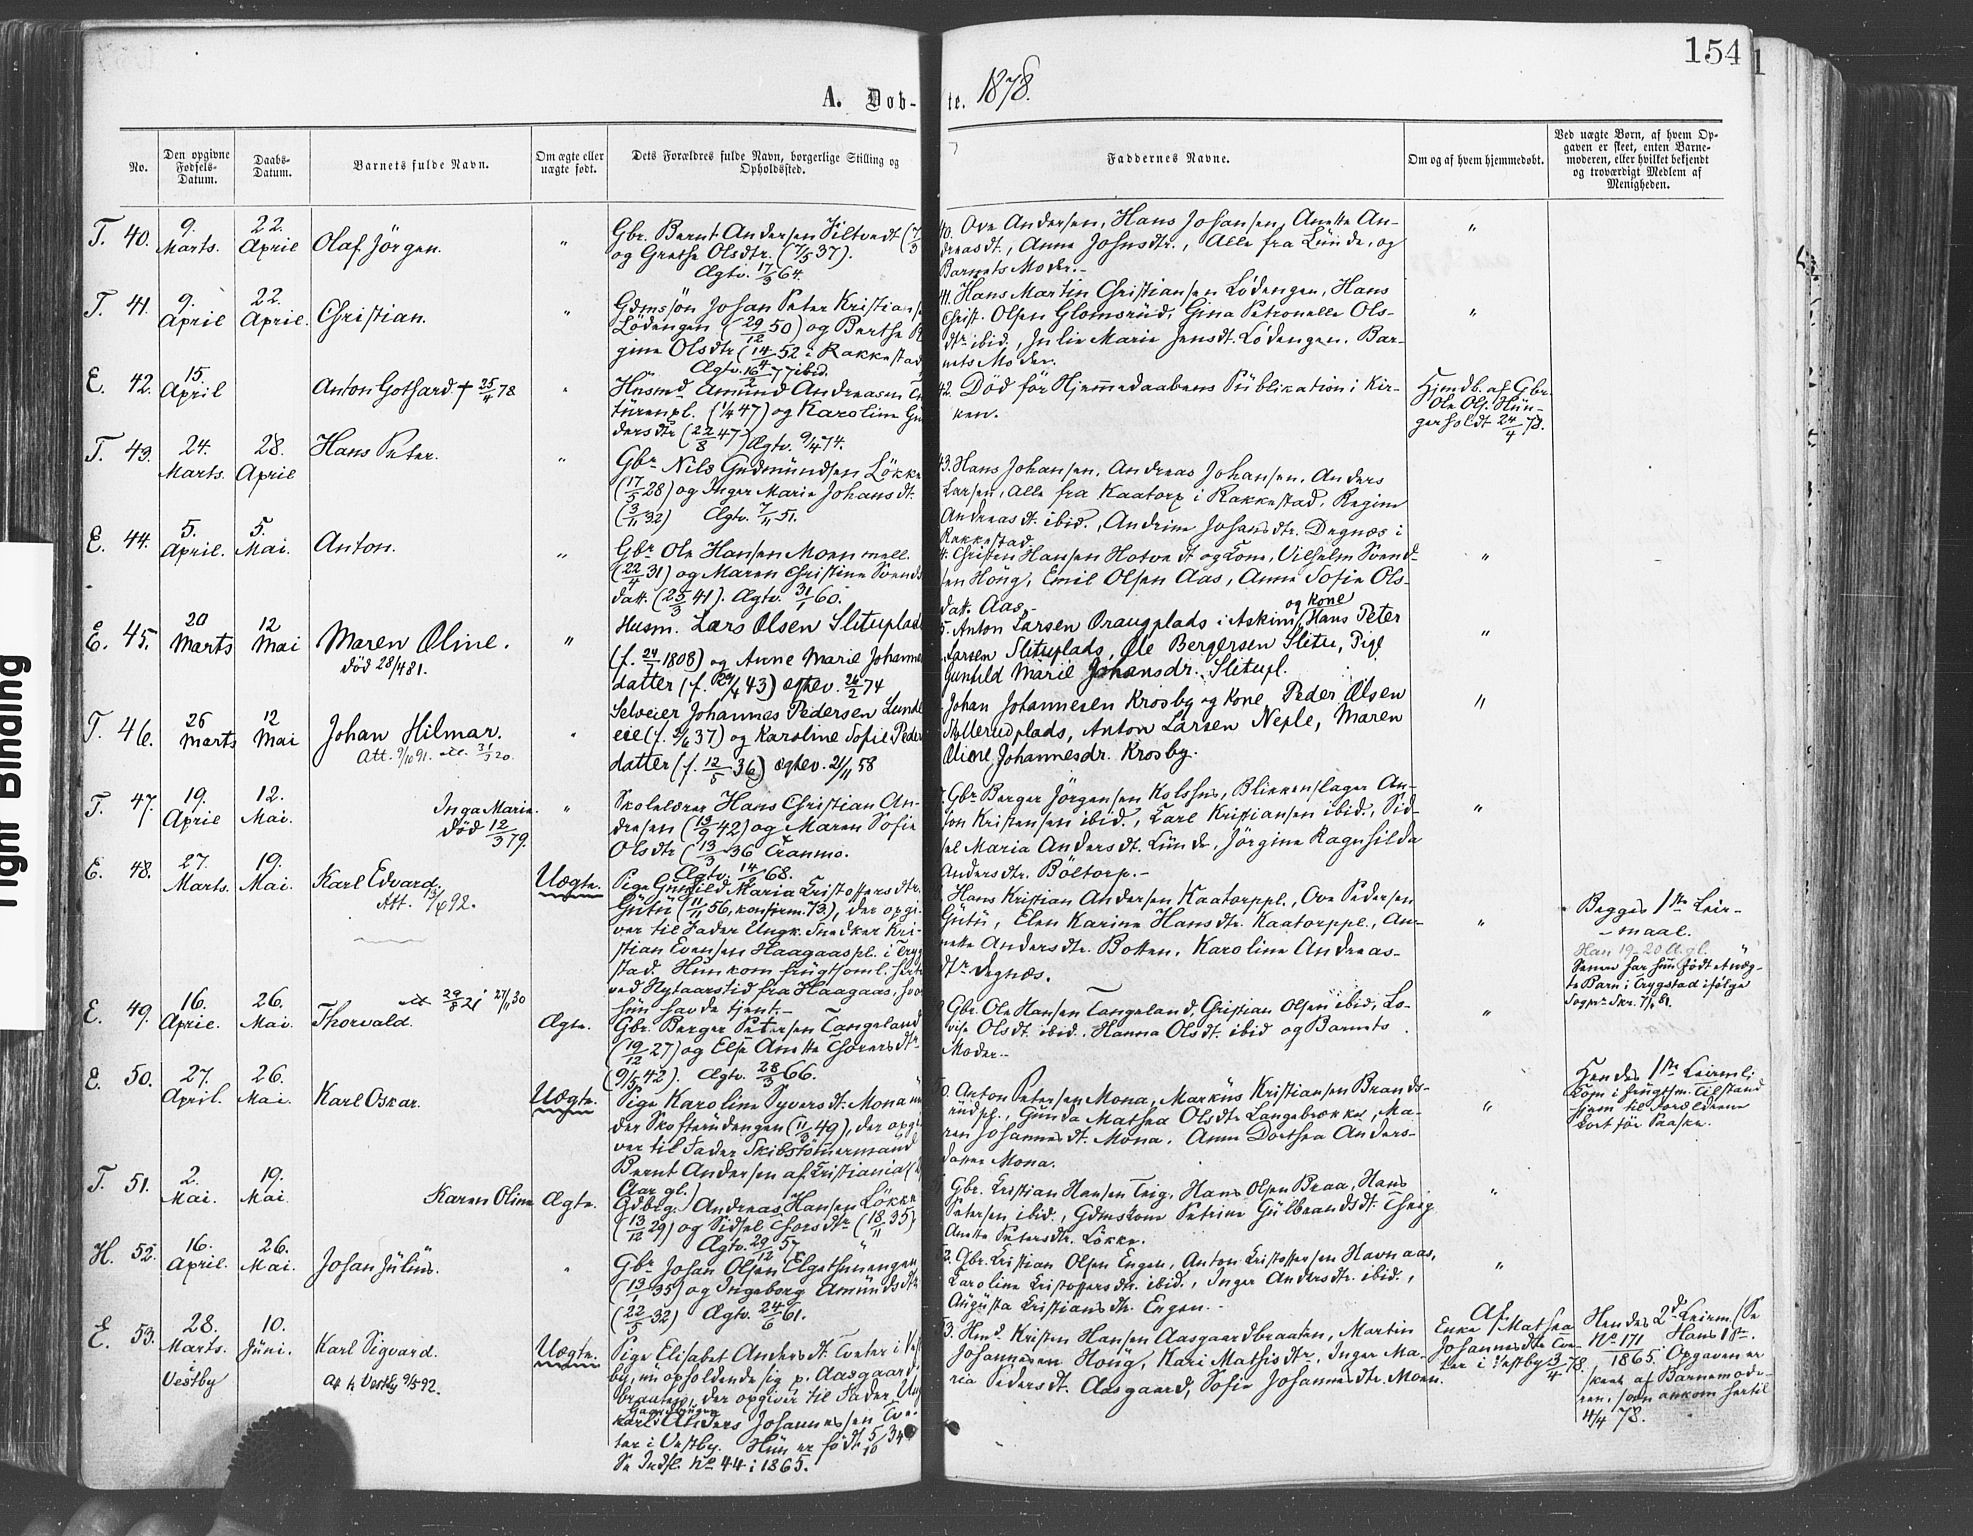 154
1
A. Døb-
te. 1878.
No.
Den opgivne Fødsels-Datum.
Daabs-Datum.
Barnets fulde Navn.
Om ægte eller uægte født.
Dets Forældres fulde Navn, borgerlige Stilling og Opholdssted.
Faddernes Navne.
Om og af hvem hjemmedøbt.
Ved uægte Børn, af hvem Opgaven er skeet, enten Barnemoderen, eller hvilket bekjendt og troværdigt Medlem af Menigheden.
T. 40. 9. Marts. 22. April Olaf Jörgen. "
Gbr. Bernt Andersen Siltvedt
og Grethe Olsdtr. (7/5 37).
Ægtv. 17/3 64.
40. Ove Andersen, Hans Johansen, Anette An-
dreasdt., Anne Johnsdtr., Alle fra Lünde, og
Barnets Moder.-
T. 41. 9. April 22. April. Christian. "
Gdmssön Johan Peter Kristian
Lödengen (29/12 50) og Berthe
gine Olsdtr (14/4 52 i Rakkestad
Ægtv. 16/2 77 ibid.
41. Hans Martin Christiansen Lödengen, Hans
Christ. Olsen Glomsrüd, Gina Petronelle Ols-
dtr ibid., Julie Marie Jensdt. Lödengen. Bar-
nets Moder.
E. 42. 15. April Anton Gothard † 25/4 78 "
Hüsmd Amund Andreasen
türenpl. (1/4 47) og Karoline
dersdtr (22/8 47) Ægtv. 9/4 74.
42. Död för Hjemmedaabens Püblikation i Kir-
ken.
Hjmdb. af Gbr.
Ole Ols. Hün-
gerholdt 24/4 78.
T. 43. 24. Marts. 28. April Hans Peter. "
Gbr Nils Gudmündsen Lökke
(17/5 28) og Inger Marie Johansdt.
(3/11 32) Ægtv. 7/11 51.
43. Hans Johansen, Andreas Johansen, Anders
Larsen, alle fra Kaatorp i Rakkestad, Regine
Andreasdt. ibid., Andrine Johansdtr. Degnæs i
Rakkestad.
E. 44. 5. April. 5. Mai. Anton. "
Gbr Ole Hansen Moen mell.
(22/4 31) og Maren Christine Svends
datt. (25/3 41). Ægtv. 31/1 60.
4. Christen Hansen Hotvedt og Kone, Vilhelm Svend-
sen Höüg, Emil Olsen Aas, Anne Sofie Ols-
datt. Aas.
E. 45. 20 Marts 12 Mai Maren Oline. "
död 28/4 81.
Husm. Lars Olsen Slituplads
(f. 24/7 1808) og Anne Marie Johannes
datter (f. 43) ægtev. 26/2 74
og kone
5. Anton Larsen Oraugplads i Askim, Hans Peter
Larsen Slituplads, Ole Bergersen Slitu, Pige
Gunhild Marie Johansdr. Slitupl.
T. 46. 26 Marts 12 Mai Johan Hilmar. "
Att. 9/10 91. 31/3 20.
Selveier Johannes Pedersen Lunde
eie (f. 9/6 37) og Karoline Sofie Peder
datter (f. 12/5 36) ægtev. 21/11 58
Johan Johannesen Krosby og Kone Peder Olsen
Møllerudplads, Anton Larsen Neple, Maren
Oline Johannesdr. Krosby.
T. 47. 19. April 12. Mai. Inga Marie. "
död 12/3 79.
Skolelærer Hans Christian An-
dresen (19/9 42) og Maren Sofie
Olsdtr (13/3 36 Tranmo.
Ægtv. 14/2 68.
Gbr Berger Jörgensen Kolshus, Blikkenslager An-
ton Kristensen ibid., Carl Kristiansen ibid., Sid-
sel Maria Andersdt. Lünde, Jörgine Ragnhilda
Andersdtr. Böltorp.-
E. 48. 27. Marts. 19. Mai. Karl Edvard. Uægte.
Att. 92.
Pige Gunhild Maria Kristoffersdtr.
Gütü (11/11 56, konfirm. 73.), der opgi-
ver til Fader Ungk. Snedker Kri-
stian Evensen Haagaaspl. i Tryg
stad. Hün kom frügtsoml. hertil
ved Nytaarstid fra Haagaas, hvor
hün havde tjent.-
Hans Kristian Andersen Kaatorppl., Ove Pedersen
Gütü, Elen Karine Hansdtr. Kaatorppl., An-
nette Andersdtr. Botten. Karoline Andreas-
dtr Degnæs.
Begges 1ste Leir-
maal.
Han 19-20 A. gl.
Senere har hün födt et uæg-
te Barn i Trygstad ifölge
Sogpr. Skr. 7/4 81.
E. 49. 16. April. 26. Mai. Thorvald. Ægte.
29/8 21 27/11 30
Gbr. Berger Petersen Tangeland
(19/12 27) og Else Anette Thoresdtr
(9/5 42). Ægtv. 28/3 66.
Gbr. Ole Hansen Tangeland, Christian Olsen ibid, Lo-
vise Olsdt. ibid. Hanna Olsdt. ibid og Barnets
Moder.-
E. 50. 27. April. 26. Mai. Karl Oskar. Uægte.
Pige Karoline Syversdt. Mona ün
der Skofterudengen (11/3 49), der opgi
ver til Fader Skibstömermand
Bernt Andersen af Kristiania
Aar gl.
Anton Petersen Mona, Marküs Kristiansen Brands-
rudpl., Gunda Mathea Olsdtr Langebrække, Ma-
ren Johannesdt. Mona. Anne Dorthea Anders-
datter Mona.
Hendes 1ste Leirml.
Kom i frügtsm. Tilstand
hjem til Forældrene
kort för Paaske.
T. 51. 2. Mai. 19. Mai. Karen Oline Ægte.
Gdbrg. Andreas Hansen Lökke
(13/12 29) og Sidsel Thorsdtr (18/11 35)
Ægtv. 29/12 57
Gbr. Kristian Hansen Teig, Hans Olsen Braa, Hans
Petersen ibid., Gdmskone Petrine Gülbrandsdt. Theig
Anette Petersdtr. Lökke.
H. 52. 16. April. 26. Mai. Johan Jüliüs. "
Gbr Johan Olsen Elgethunengen
(13/1 35) og Ingeborg Amündsdtr
(22/5 32) Ægtv. 24/6 61.
52. Gbr. Kristian Olsen Engen, Anton Kristoffersen Havnaas,
Karoline Kristoffersdtr. ibid., Inger Andersdtr. ibid.,
Augusta Kristiansdtr. Engen.-
E. 53. 28. Marts. i Vestby 10. Jüni. Karl Sigvard. Uægte.
Att. t. Vestby 9/5 92.
Pige Elisabet Andersdt. Tveter i Vest
by, nü opholdende sig p. Aasgaard
braaten, der opgiver til Fader Ung
karl Anders Johannessen Tve-
ter i Vestby. Hün er födt 5/10 34
Se Indfl. No 44 i 1865.
53. Hmd. Kristen Hansen Aasgaardbraaten, Martin
Johannesen Höüg, Kari Mathisdtr., Inger Ma-
ria Pedersdt. Aasgaard, Sofie Johannesdtr. Moen.
Af
Enke Mathea
Johannesdtr Tve-
ter i Vestby 3/4 78.
Hendes 2d Leirm. (Se
No 171 1865. Hans 1ste.
Opgaven er
skeet af Barnemode-
ren, som ankom hertil
4/4 78.
Tight Binding